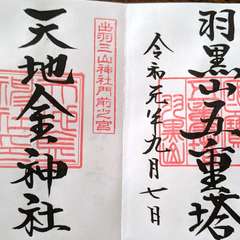 羽黒山五重塔
令和元年九月七日
出羽三山神社門前之宮
天地金神社